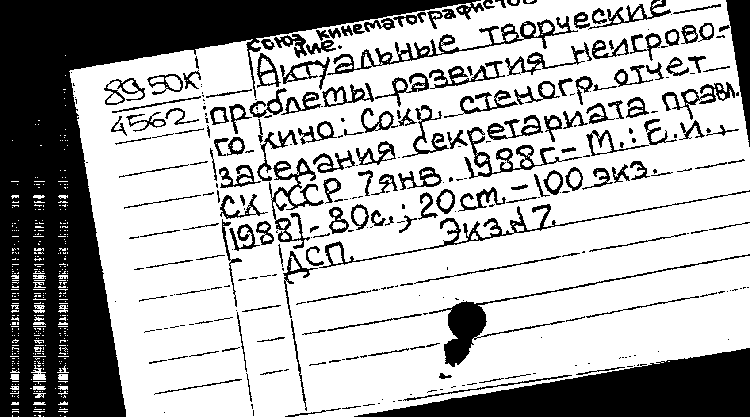 союз кинематографистов
ние.
8950К Актуальные творческие
4562 проблемы развития неигрово-
го кино: Сокр. стеногр. отчет
заседания секретариата правл.
СК СССР 7 янв. 1988г.- М.: Б.и.,
[1988].- 80с.; 20 cm. - 100 экз.
ДСП. Экз.№7.